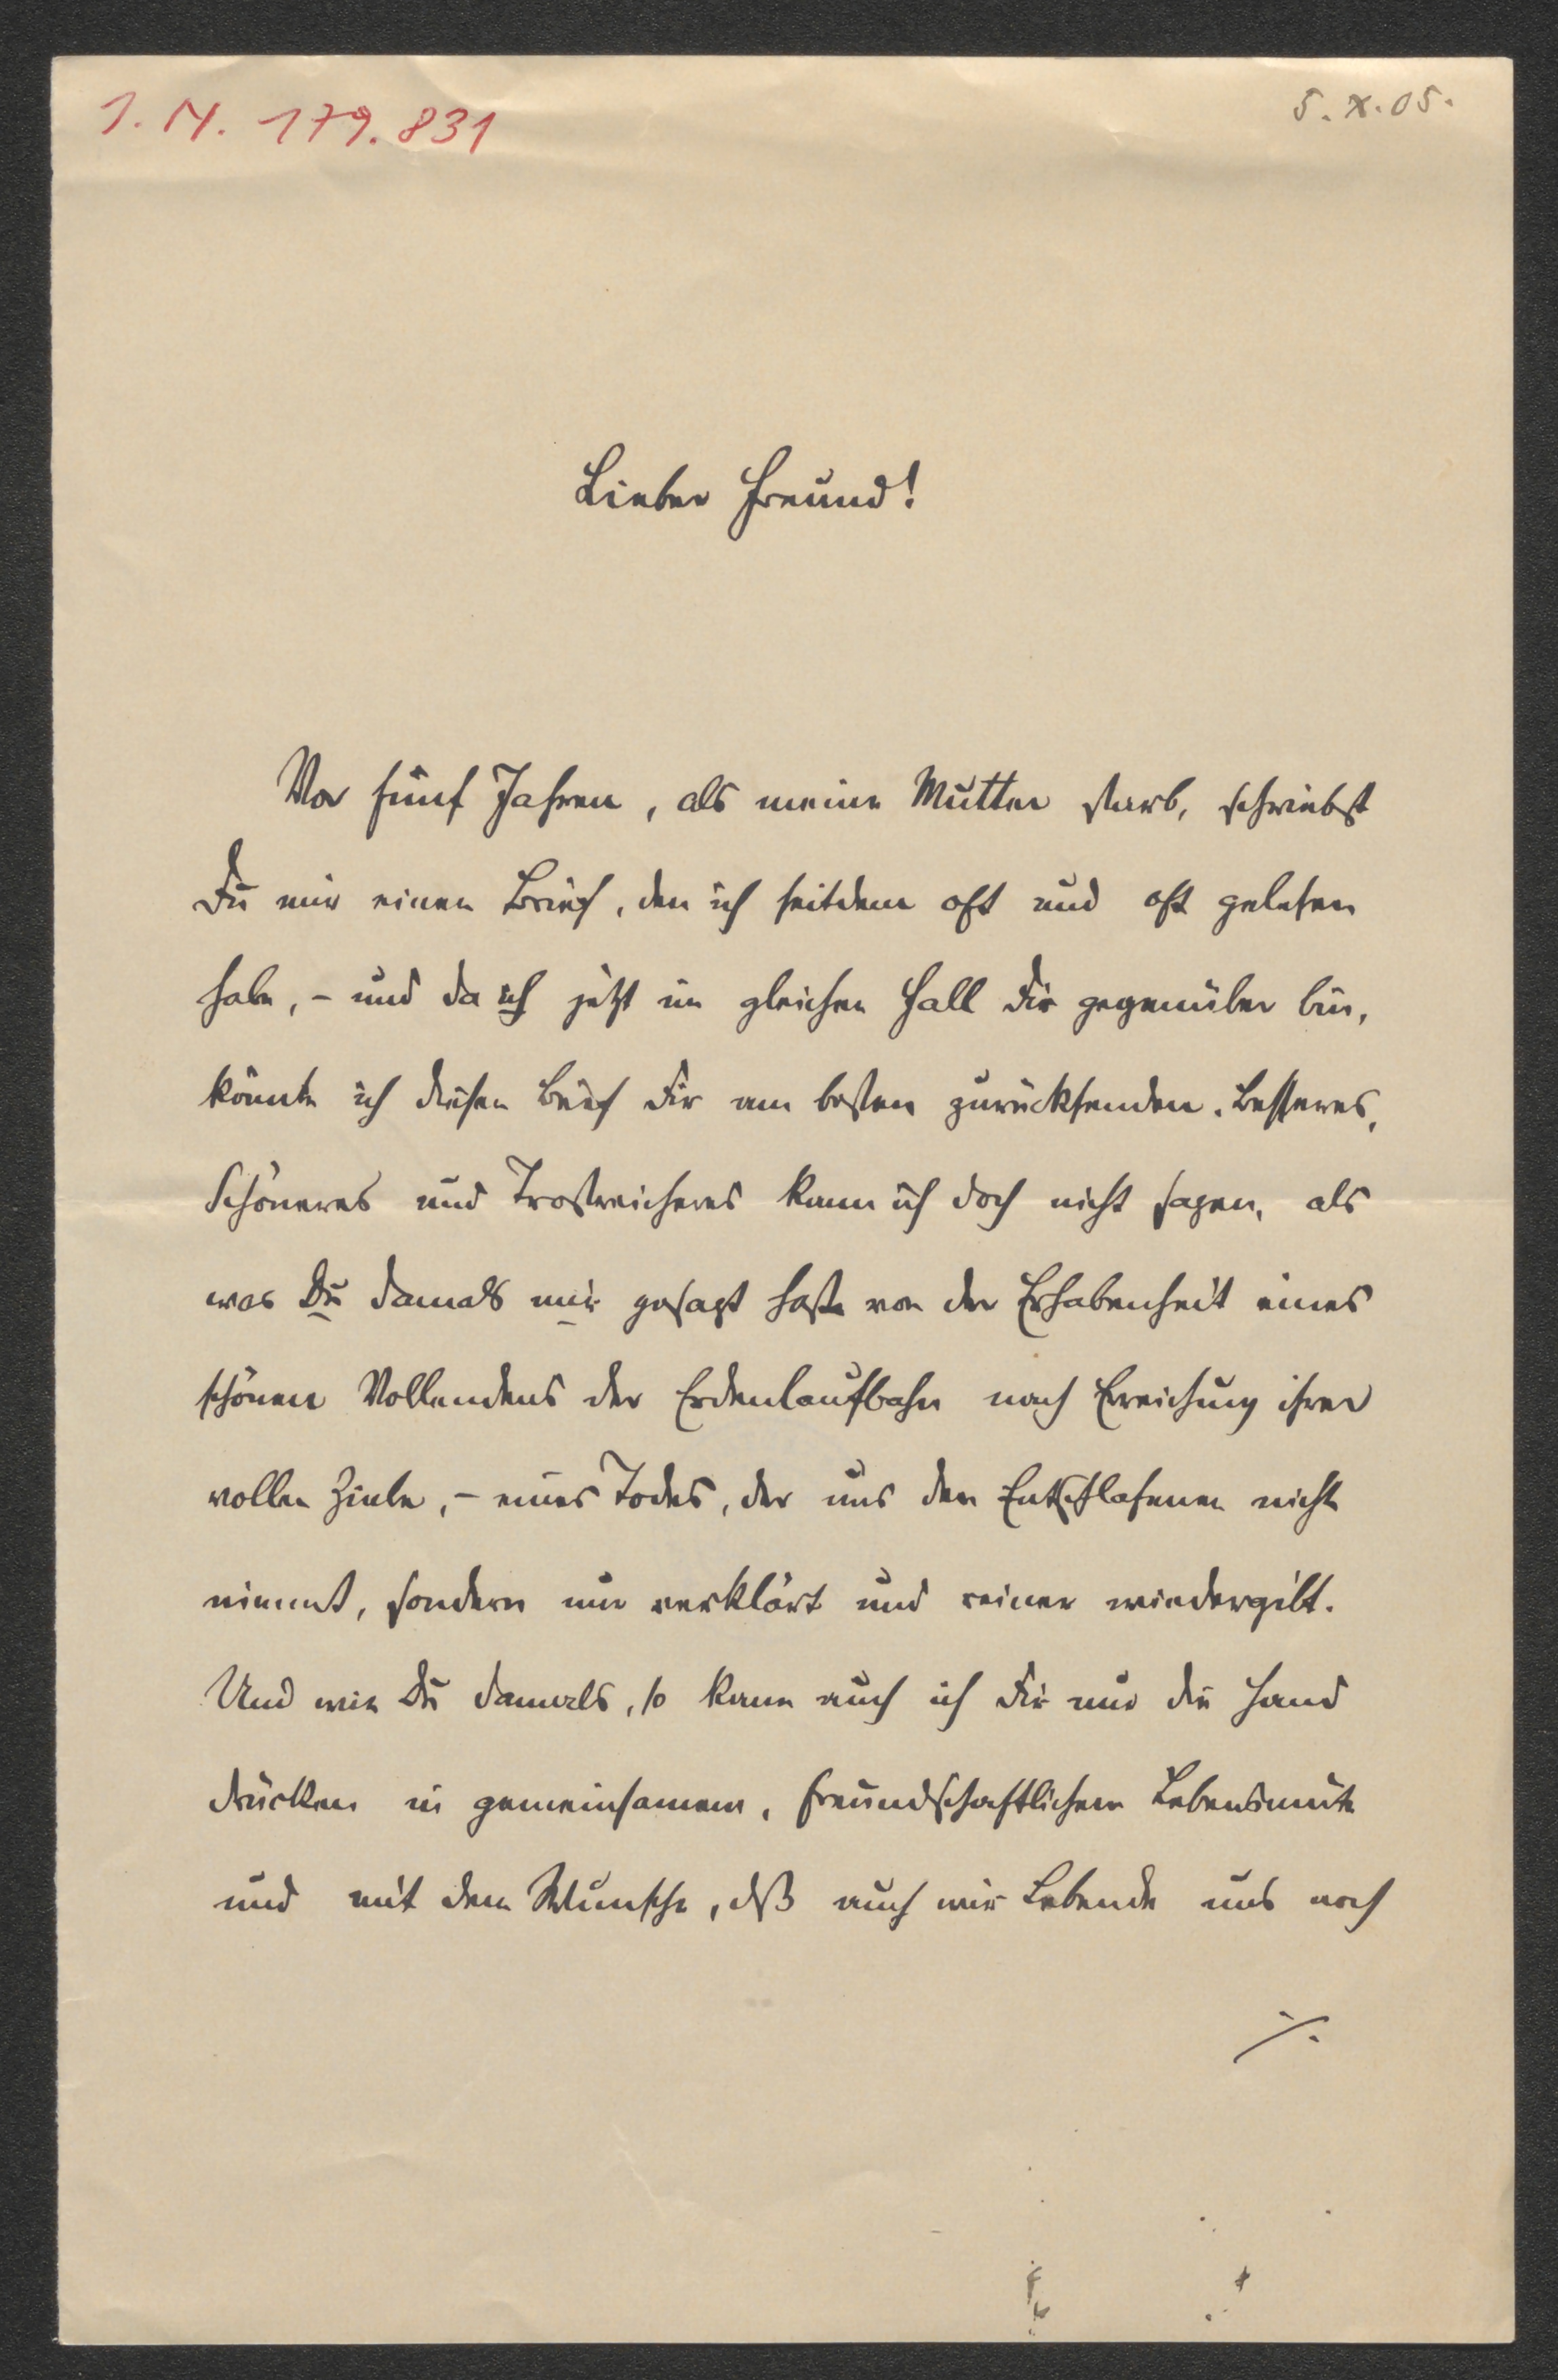 I. N. 179.831
5. X. 05.
Lieber Freund!
Vor fünf Jahren, als meine Mutter starb, schriebst
Du mir einen Brief, den ich seitdem oft und oft gelesen
habe, – und da ich jetzt im gleichen Fall Dir gegenüber bin,
könnte ich diesen Brief Dir am besten zurücksenden. Besseres,
Schöneres und Trostreicheres kann ich doch nicht sagen, als
was Du damals mir gesagt hast von der Erhabenheit eines
schönen Vollendens der Erdenlaufbahn nach Erreichung ihrer
vollen Ziele, – eines Todes, der uns den Entschlafenen nicht
nimmt, sondern nur verklärt und reiner wiedergibt.
Und wie Du damals, so kann auch ich Dir nur die Hand
drücken in gemeinsamem, freundschaftlichem Lebensmute
und mit dem Wunsche, dß auch wir Lebende uns noch
./.